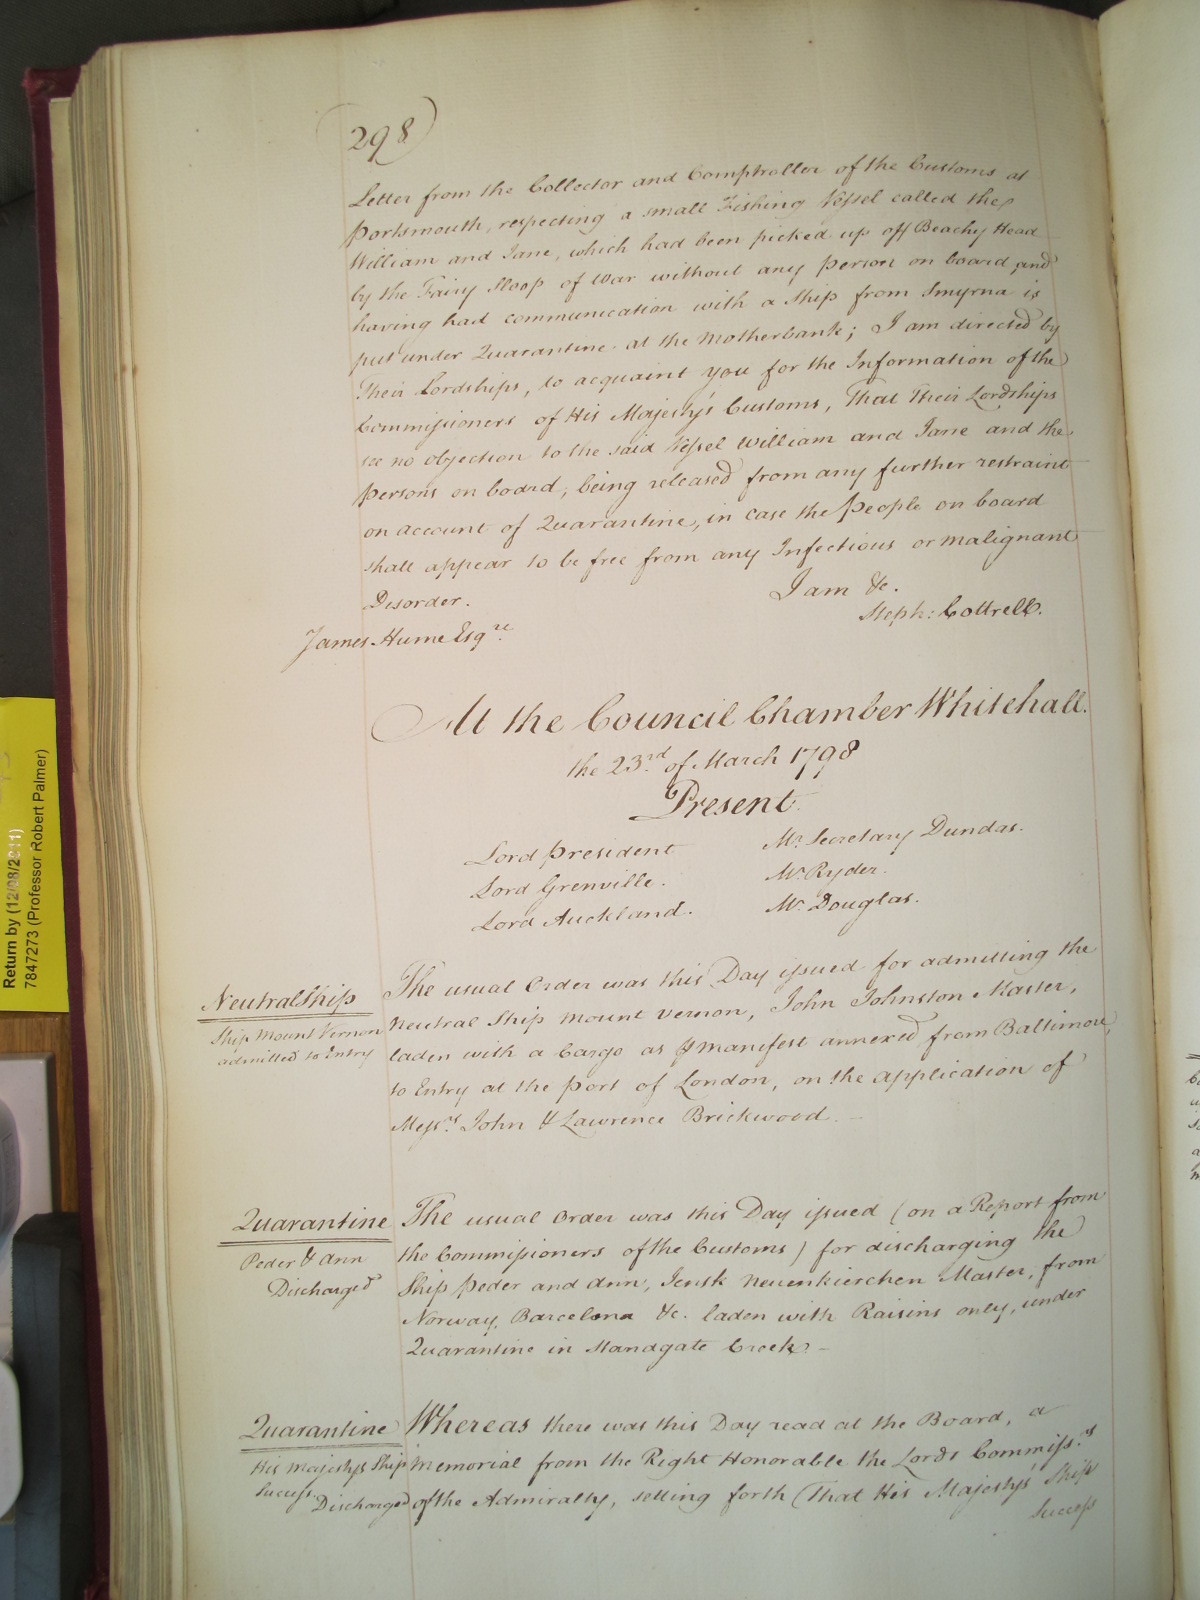 298
Letter from the Collector and Comptroller of the Customs at
Portsmouth, respecting a small Fishing Vessel called the
William and Jane, which had been picked up off Beachy Head
by the Fairy Sloop of War without any Person on board, and
having had communication with a Ship from Smyrna is
put under Quarantine at the Motherbank; I am directed by
Their Lordships, to acquaint you for the Information of the
Commissioners of His Majesty's Customs, That Their Lordships
see no objection to the said Vessel William and Jane and the
Persons on board, being released from any further restraint
on account of Quarantine, in case the People on board
shall appear to be free from any Infectious or malignant
Desorder.
I am &c.
Steph: Cottrell.
James Hume Esqre.
At the Council Chamber Whitehall.
the 23rd. of March 1798
Present.
Lord President
Mr. Secretary Dundas.
Lord Grenville.
Mr. Ryder.
Lord Auckland.
Mr. Douglas.
Neutral Ship
Ship Mount Vernon
admitted to Entry
The usual Order was this Day issued for admitting the
Neutral Ship Mount Vernon, John Johnston Master,
laden with a Cargo as P manifest annexed from Baltimore,
to Entry at the Port of London, on the application of
Messrs. John & Lawrence Brickwood.
Quarantine
Peder & Ann
Discharged
The usual Order was this Day issued (on a Report from
the Commissioners of the Customs) for discharging the
Ship Peder and Ann, Jensk Neuenkierchen Master, from
Norway, Barcelona &c. laden with Raisins only, under
Quarantine in Standgate Creek.
Quarantine
His Majesty's Ship
Success Discharged
Whereas there was this Day read at the Board, a
Memorial from the Right Honorable the Lords Commissrs.
of the Admiralty, setting forth (That His Majesty's Ship
Success
Return by (12/08/2011)
7847273 (Professor Robert Palmer)